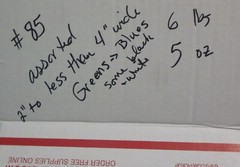 #85
assorted
2" to less than 4" wide
Greens -> Blues
some black
+ white
6 lbs
5 oz
ORDER FREE SUPPLIES ONLINE